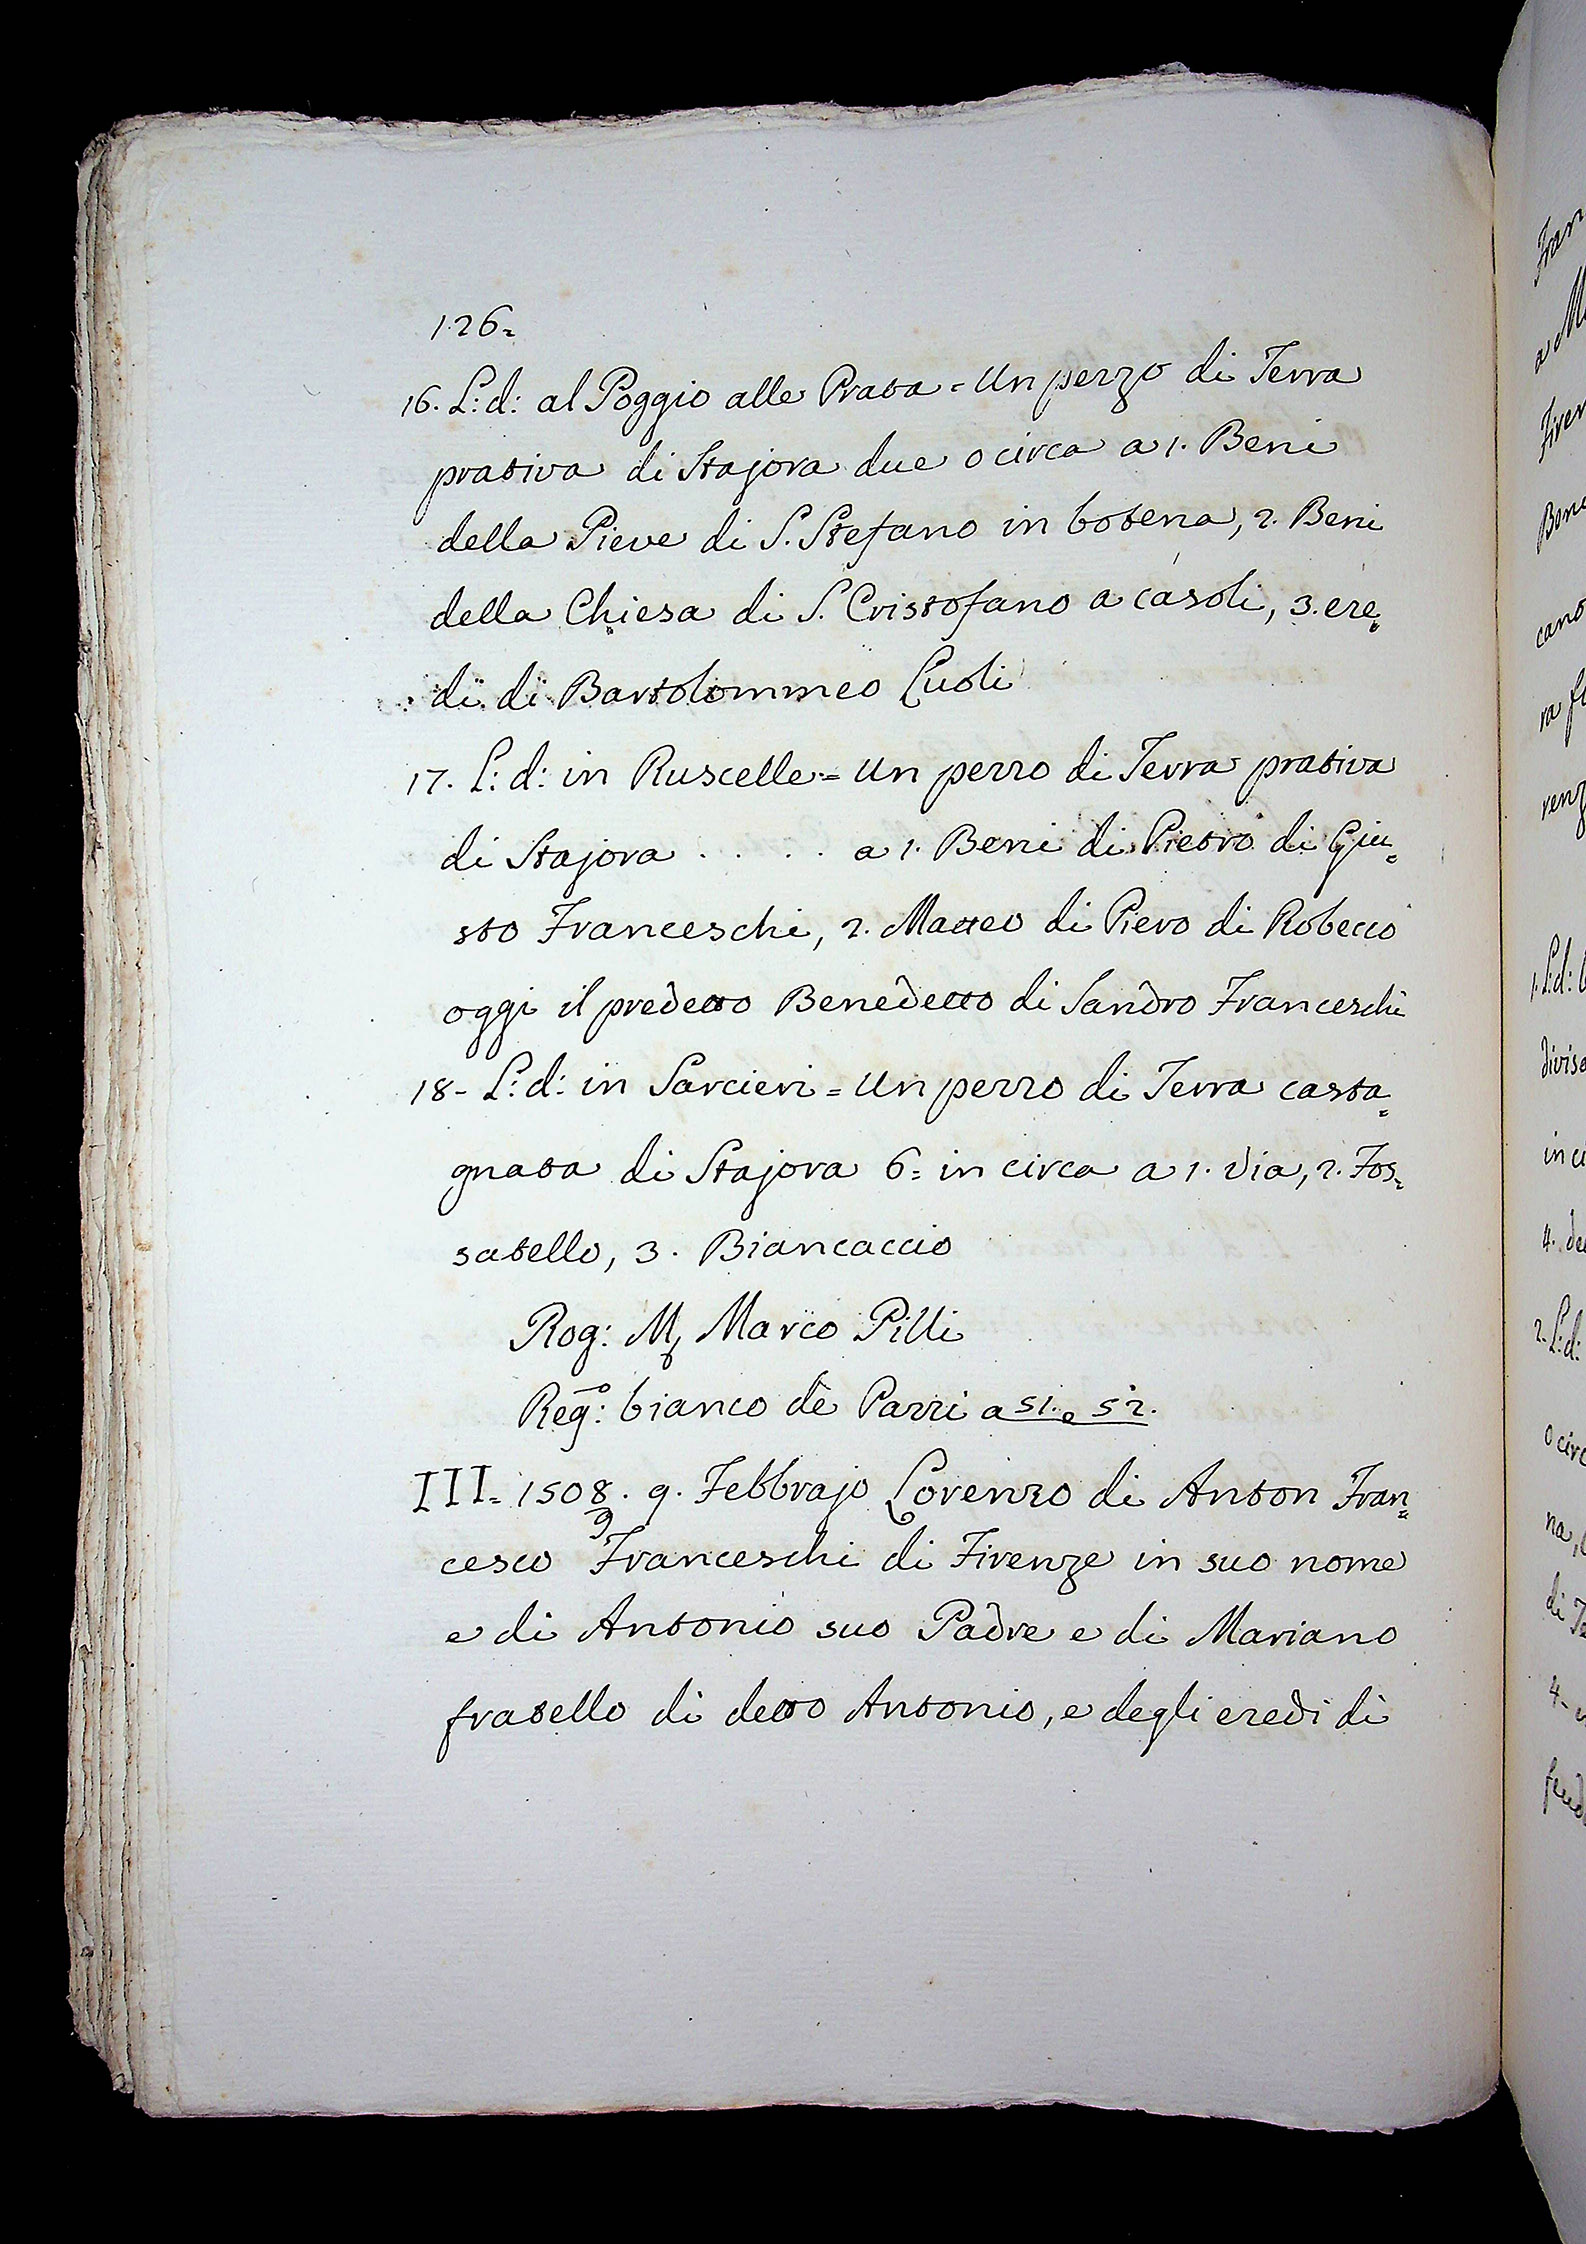 126=
16. L: d: al Poggio alle Prata = Un pezzo di Terra
prativa di Stajora due o circa a 1. Beni
della Pieve di S. Stefano in botena, 2. Beni
della Chiesa di S. Cristofano a casoli, 3. ere=
di di Bartolommeo Luoli
17. L: d: in Ruscelle = Un pezzo di Terra prativa
di Stajora . . . . . a 1. Beni di Pietro di Giu=
sto Franceschi, 2. Matteo di Piero di Robecco
oggi il predetto Benedetto di Sandro Franceschi
18- L: d: in Sarcieri = Un pezzo di Terra casta=
gnata di Stajora 6= in circa a 1. via, 2. Fos=
satello, 3. Biancaccio
Rog: M Marco Pilli
Reg:º bianco dè Pazzi a 51. e 52.
III= 1508. 9. Febbrajo Lorenzo di Anton Fran=
9
cesco Franceschi di Firenze in suo nome
e di Antonio suo Padre e di Mariano
fratello di detto Antonio, e degli eredi di